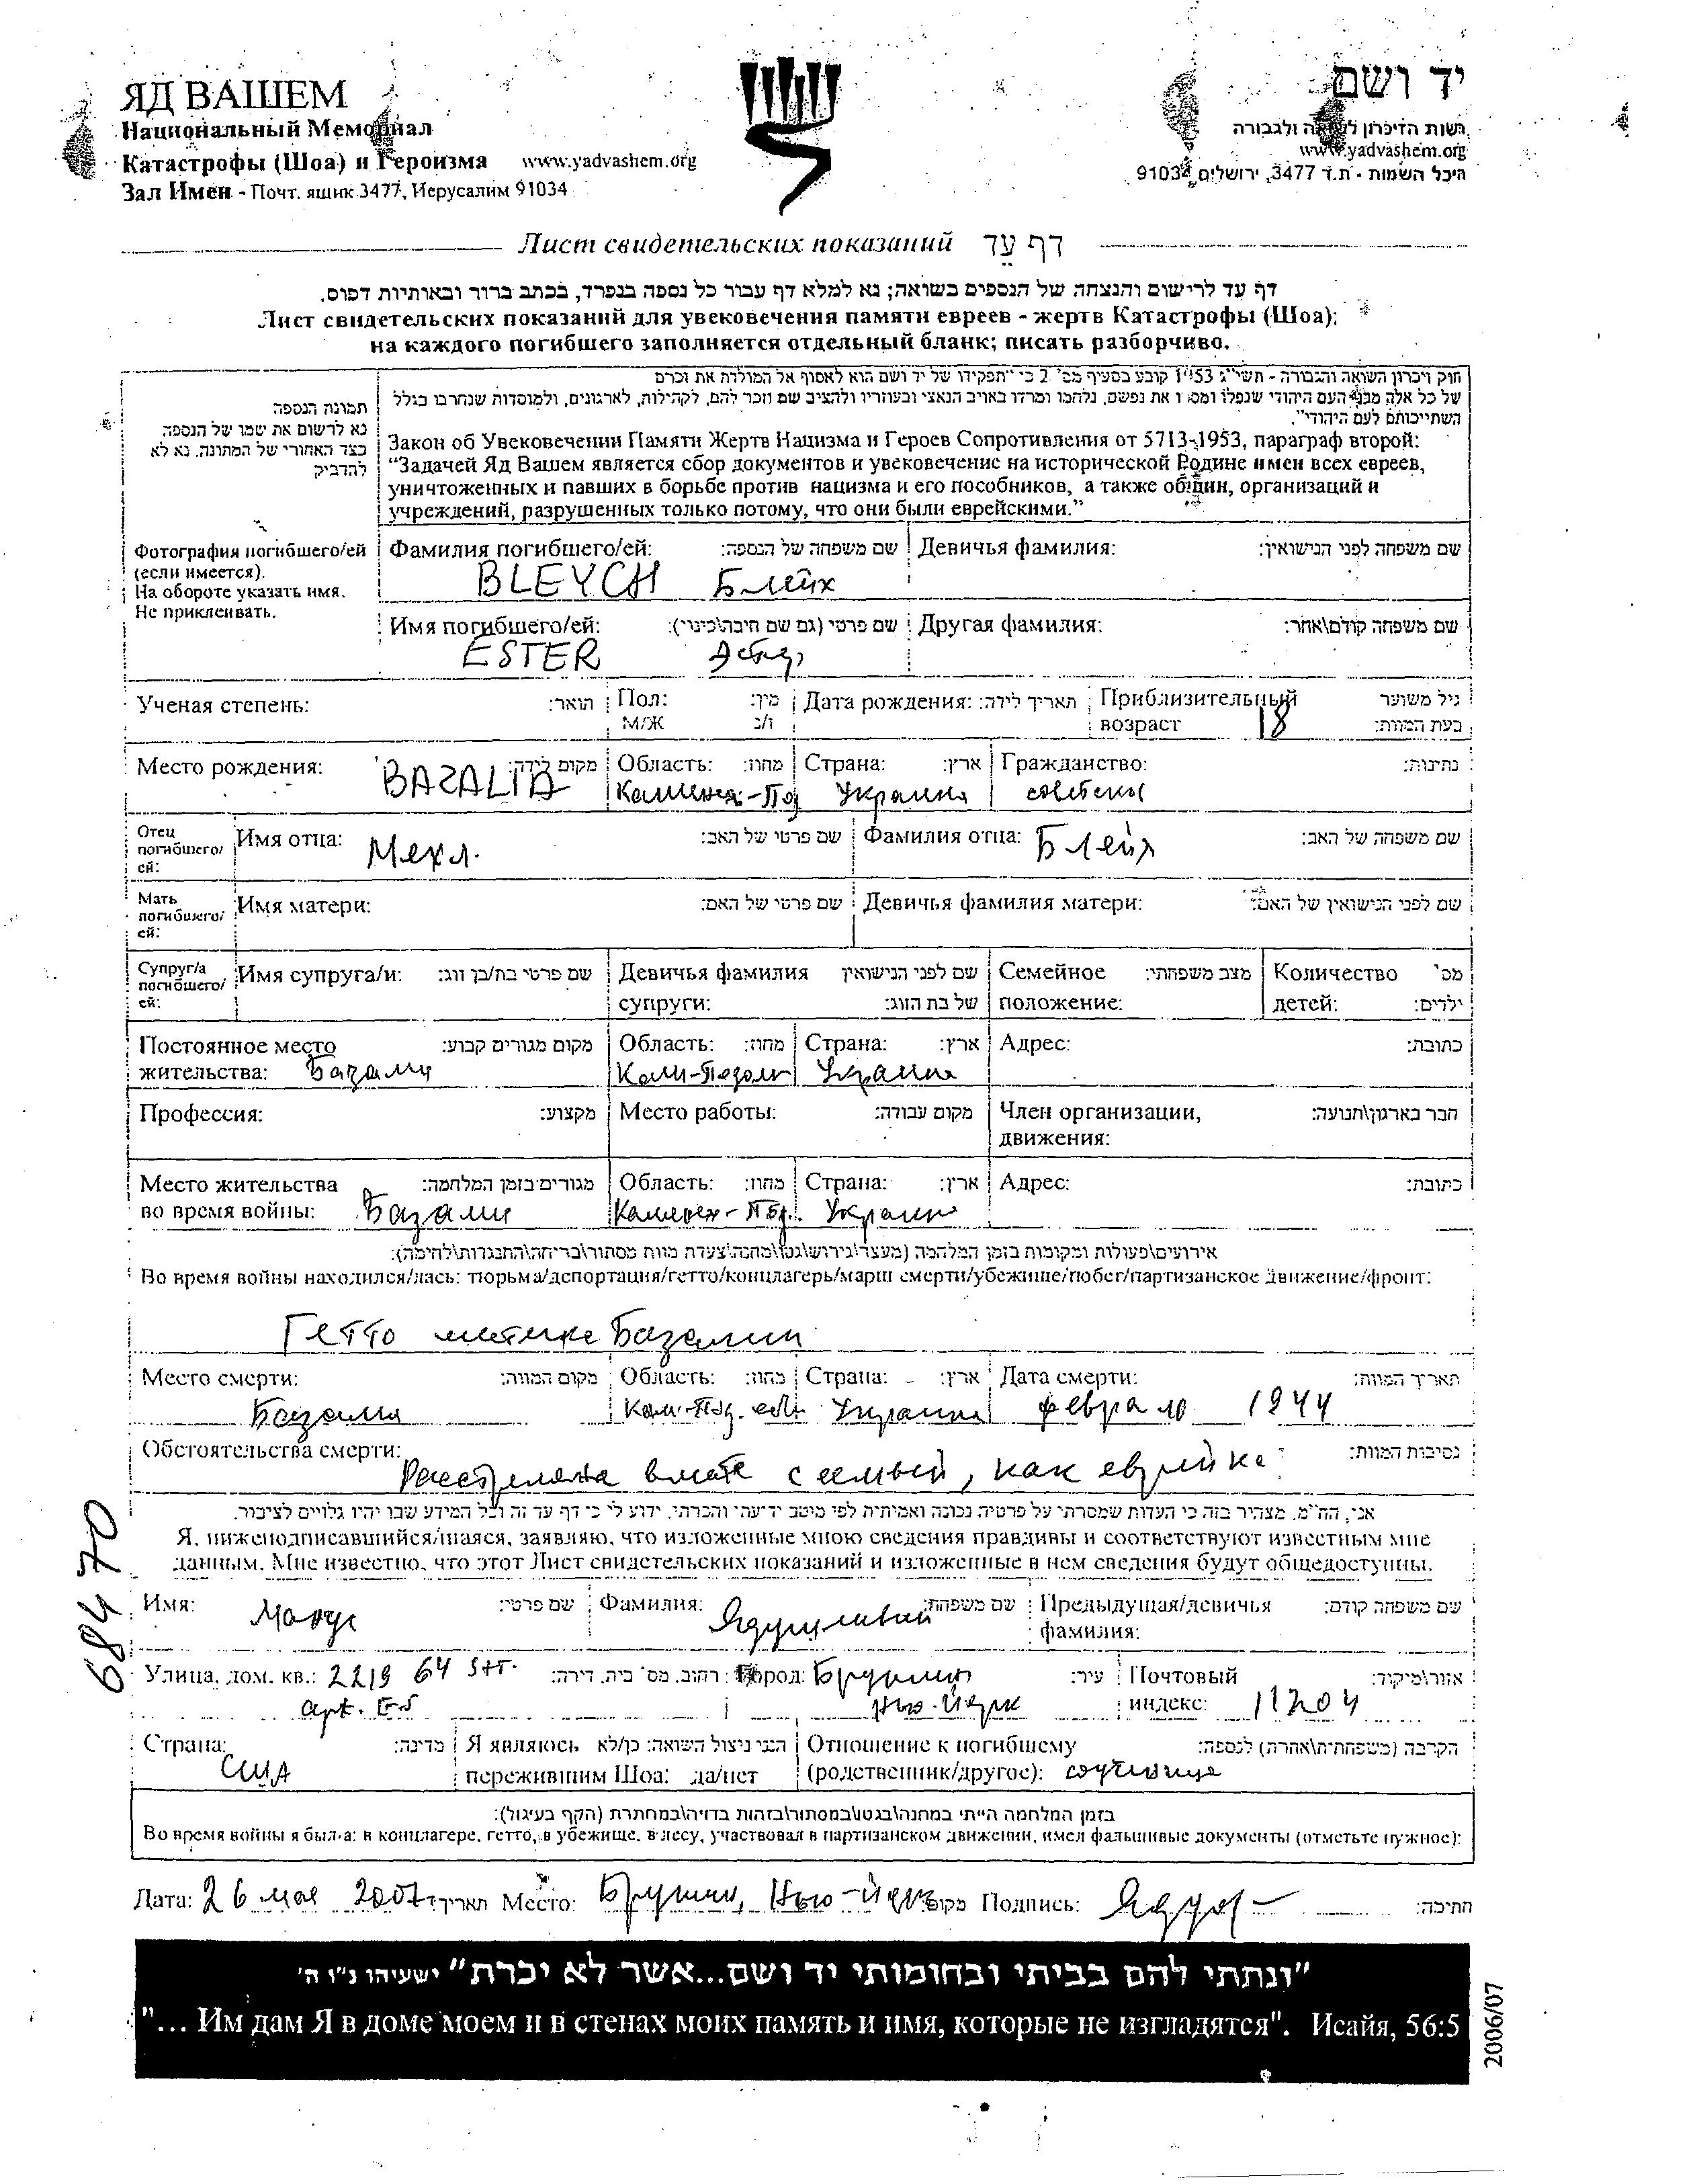 ЯД ВАШЕМ
Национальный Мемориал
Катастрофы (Шоа) и Героизма www.yadvashem.org
Зал Имён - Почт. ящик 3477, Иерусалим 91034
יד ושם
רשות הזיכרון לשואה ולגבורה
www.yadvashem.org
היכל השמות - ת.ד 3477, ירושלים 91034
Лист свидетельских показаний דף עֵד
דף עד לרישום והנצחה של הנספים בשואה; נא למלא דף עבור כל נספה בנפרד, בכתב ברור ובאותיות דפוס.
Лист свидетельских показаний для увековечения памяти евреев - жертв Катастрофы (Шоа);
на каждого погибшего заполняется отдельный бланк; писать разборчиво.
תמונת הנספה
נא לרשום את שמו של הנספה
בצד האחורי של התמונה. נא לא
להדביק
Фотография погибшего/ей
(если имеется).
На обороте указать имя.
Не приклеивать.
חוק זיכרון השואה והגבורה - תשי"ג 1953 קובע בסעיף מס' 2 כי "תפקידו של יד ושם הוא לאסוף אל המולדת את זכרם
של כל אלה מבני העם היהודי שנפלו ומסרו את נפשם, נלחמו ומרדו באויב הנאצי ובעוזריו ולהציב שם וזכר להם, לקהילות, לארגונים, ולמוסדות שנחרבו בגלל
השתייכותם לעם היהודי".
Закон об Увековечении Памяти Жертв Нацизма и Героев Сопротивления от 5713-1953, параграф второй:
"Задачей Яд Вашем является сбор документов и увековечение на исторической Родине имен всех евреев,
уничтоженных и павших в борьбе против нацизма и его пособников, а также общин, организаций и
учреждений, разрушенных только потому, что они были еврейскими."
Фамилия погибшего/ей: שם משפחה של הנספה: Девичья фамилия: שם משפחה לפני הנישואין:
BLEYCH Блейх
Имя погибшего/ей: שם פרטי (גם שם חיבה\כינוי): Другая фамилия: שם משפחה קודם\אחר:
ESTER Эстер
Ученая степень: תואר: Пол: מין: Дата рождения: תאריך לידה: Приблизительный גיל משוער
М/Ж ז/נ возраст 18 בעת המוות:
Место рождения: מקום לידה: Область: מחוז: Страна: ארץ: Гражданство: נתינות:
BAZALIA Каменец-Под Украина советск
Отец
погибшего/
ей:
Имя отца: Мехл. שם פרטי של האב: Фамилия отца: Блейх שם משפחה של האב:
Мать
погибшего/
ей:
Имя матери: שם פרטי של האם: Девичья фамилия матери: שם לפני הנישואין של האם:
Супруг/а
погибшего/
ей:
Имя супруга/и: שם פרטי בת/בן זוג: Девичья фамилия שם לפני הנישואין Семейное מצב משפחתי: Количество מס'
супруги: של בת הזוג: положение: детей: ילדים:
Постоянное место מקום מגורים קבוע: Область: מחוז: Страна: ארץ: Адрес: כתובת:
жительства: Базалия Кам-Подол Украина
Профессия: מקצוע: Место работы: מקום עבודה: Член организации, חבר בארגון\תנועה:
движения:
Место жительства מגורים בזמן המלחמה: Область: מחוז: Страна: ארץ: Адрес: כתובת:
во время войны: Базалия Каменец-Под. Украина
אירועים\פעולות ומקומות בזמן המלחמה (מעצר\גירוש\גטו\מחנה\צעדת מוות מסתור\בריחה\התנגדות\לחימה):
Во время войны находился/лась: тюрьма/депортация/гетто/концлагерь/марш смерти/убежище/побег/партизанское движение/фронт:
Гетто местечке Базалии
Место смерти: מקום המוות: Область: מחוז: Страна: ארץ: Дата смерти: תאריך המוות:
Базалия Кам-Под. обл Украина феврал 1944
Обстоятельства смерти: נסיבות המוות:
Расстреляна вместе с семьей, как еврейка
אני, הח"מ, מצהיר בזה כי העדות שמסרתי על פרטיה נכונה ואמיתית לפי מיטב ידיעתי והכרתי. ידוע לי כי דף עד זה וכל המידע שבו יהיו גלויים לציבור.
Я, нижеподписавшийся/шаяся, заявляю, что изложенные мною сведения правдивы и соответствуют известным мне
данным. Мне известно, что этот Лист свидетельских показаний и изложенные в нем сведения будут общедоступны.
Имя: שם פרטי: Фамилия: שם משפחה: Предыдущая/девичья שם משפחה קודם:
фамилия:
Улица, дом. кв.: 2219 64 Str. רחוב, מס' בית, דירה: Город: Бруклин עיר: Почтовый אזור\מיקוד:
apt. E5 Нью-Йорк индекс: 11204
Страна: США מדינה: Я являюсь הנני ניצול השואה: כן/לא Отношение к погибшему הקרבה (משפחתית\אחרת) לנספה:
пережившим Шоа: да/нет (родственник/другое):
בזמן המלחמה הייתי במחנה\בגטו\במסתור\בזהות בדויה\במחתרת (הקף בעיגול):
Во время войны я был-а: в концлагере, гетто, в убежище, в лесу, участвовал в партизанском движении, имел фальшивые документы (отметьте нужное):
Дата: 26 мая 2007 תאריך: Место: Бруклин, Нью-Йорк מקום: Подпись: חתימה:
"ונתתי להם בביתי ובחומותי יד ושם...אשר לא יכרת" ישעיהו נ"ו ה'
"... Им дам Я в доме моем и в стенах моих память и имя, которые не изгладятся". Исайя, 56:5
68470
2006/07